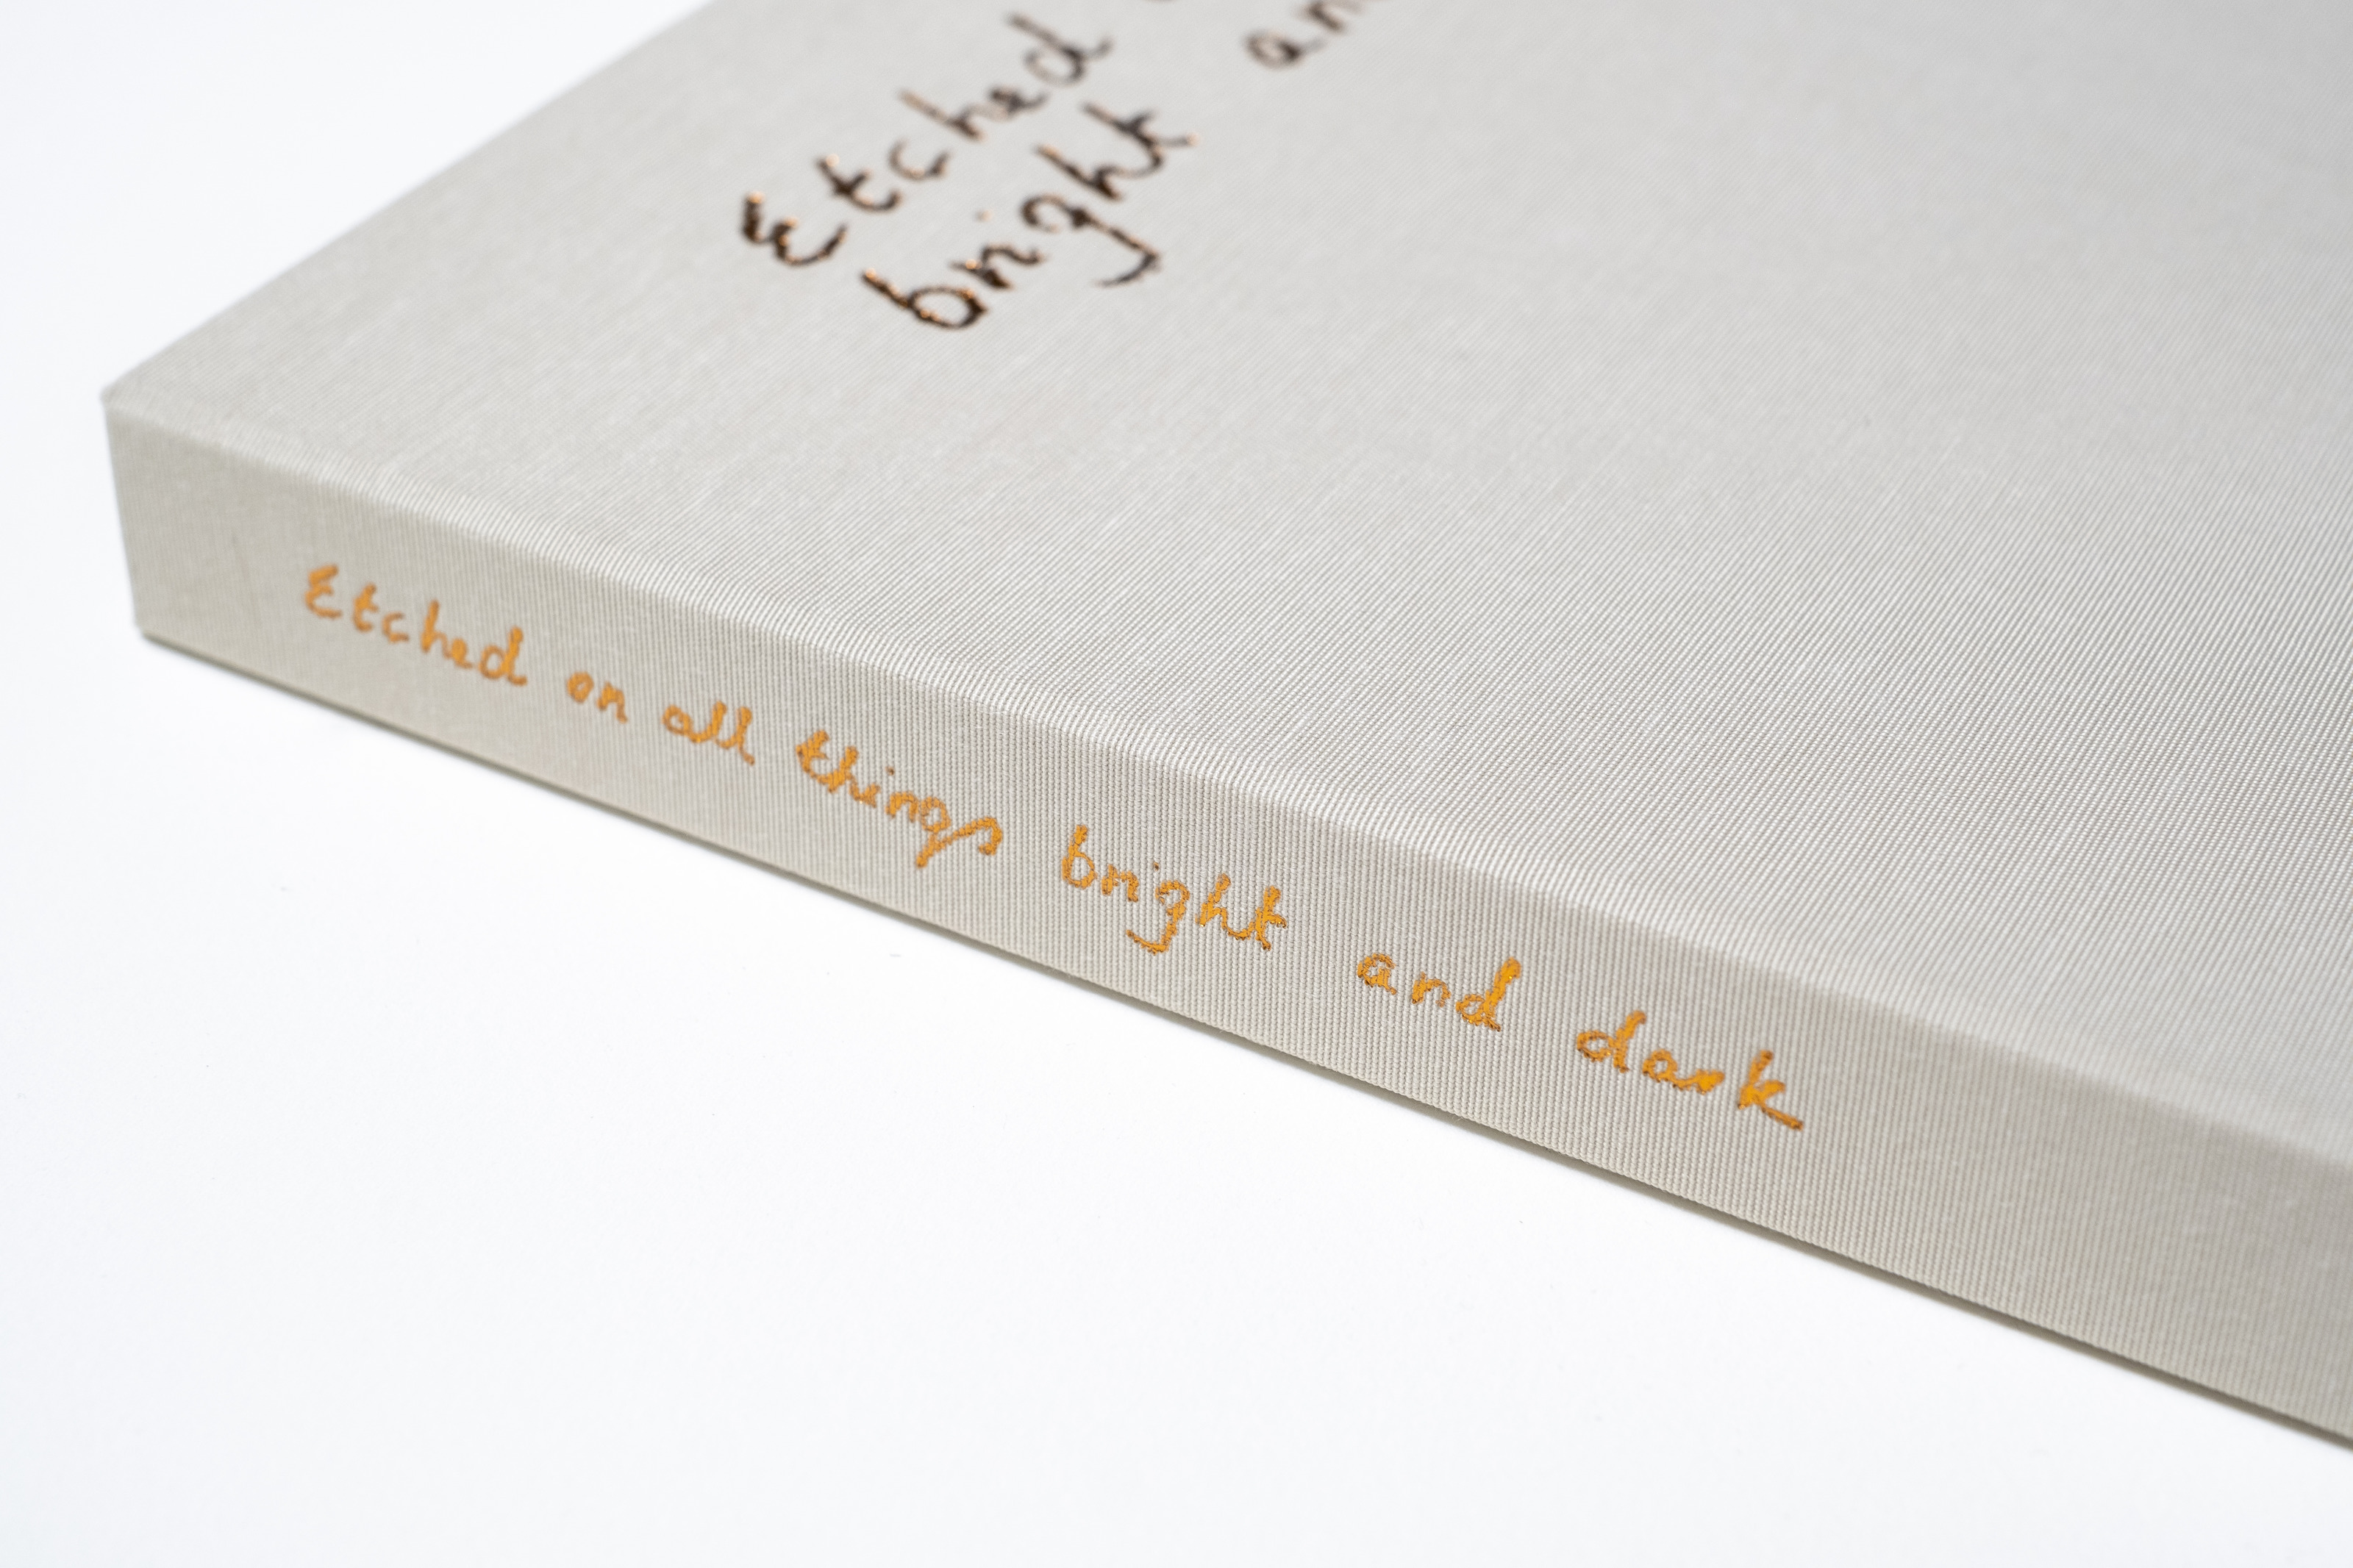 Etched
bright an
Etched on all things bright and dark